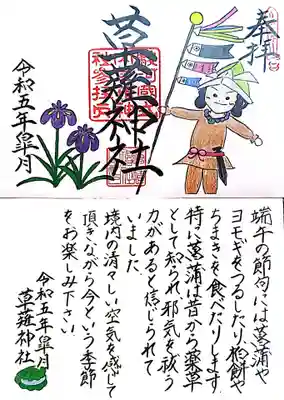 奉拝
草薙神社
令和五年皐月
端午の節句には菖蒲や
ヨモギをつるしたり、柏餅や
ちまきを食べたりします。
特に菖蒲は昔から薬草
として知られ邪気を祓う
力があると信じられて
いました。
境内の清々しい空気を感じて
頂きながら今という季節
をお楽しみ下さい。
令和五年皐月
草薙神社